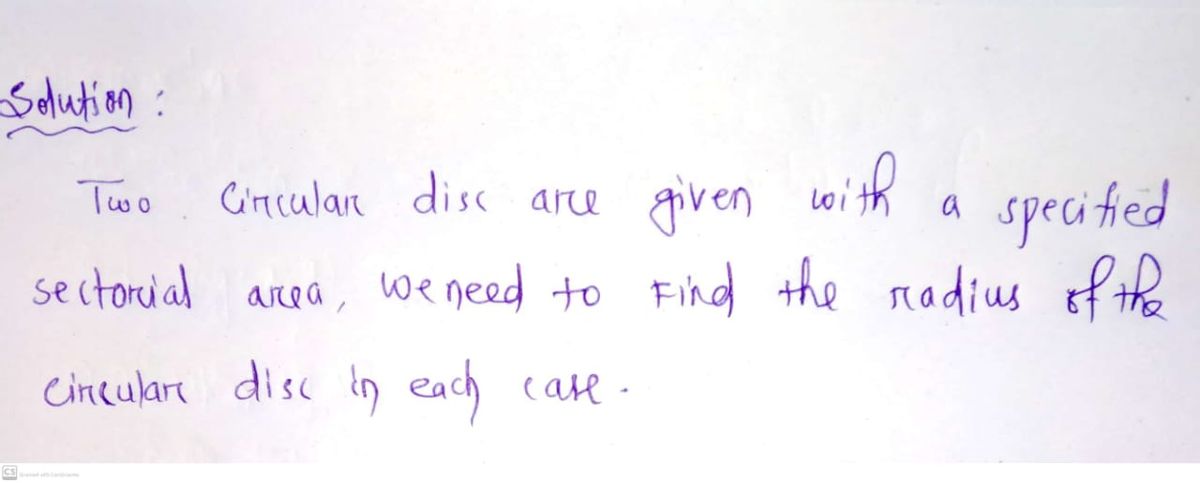 Solution :
Two Circular disc are given with a specified
sectorial area, we need to Find the radius of the
circular disc in each case.
CS